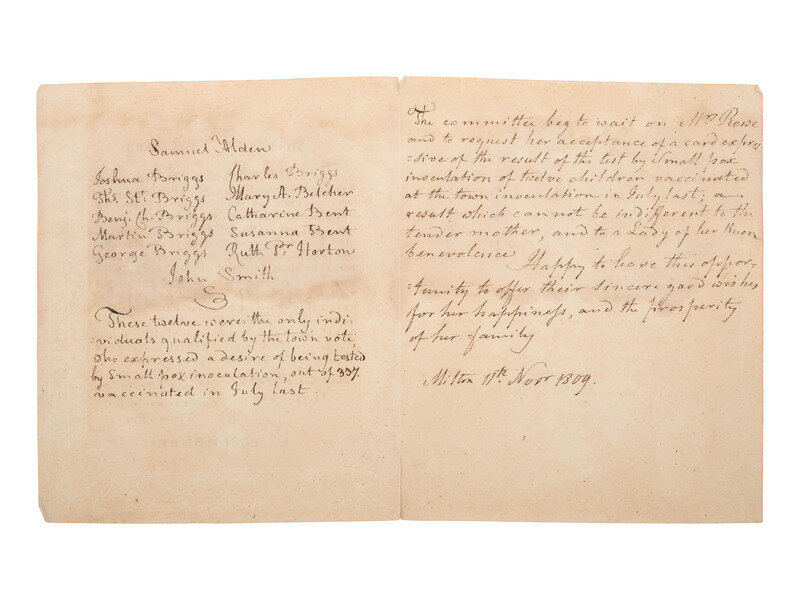 Samuel Alden
Joshua Briggs Charles Briggs
Ths. St. Briggs Mary A. Belcher
Benj. Ch. Briggs Catharine Bent
Martin Briggs Susanna Bent
George Briggs Ruth Horton
John Smith
These twelve were the only indi-
viduals qualified by the town vote,
who expressed a desire of being tested
by Small pox inoculation, out of 337
vaccinated in July last.
The committee beg to wait on Mrs Rowe
and to request her acceptance of a card expres-
=sive of the result of the test by Small pox
inoculation of twelve children vaccinated
at the town inoculation in July last; a
result which cannot be indifferent to the
tender mother, and to a Lady of her known
benevolence. Happy to have this oppor-
tunity to offer their sincere good wishes
for her happiness, and the prosperity
of her family
Milton 11th. Novr 1809.